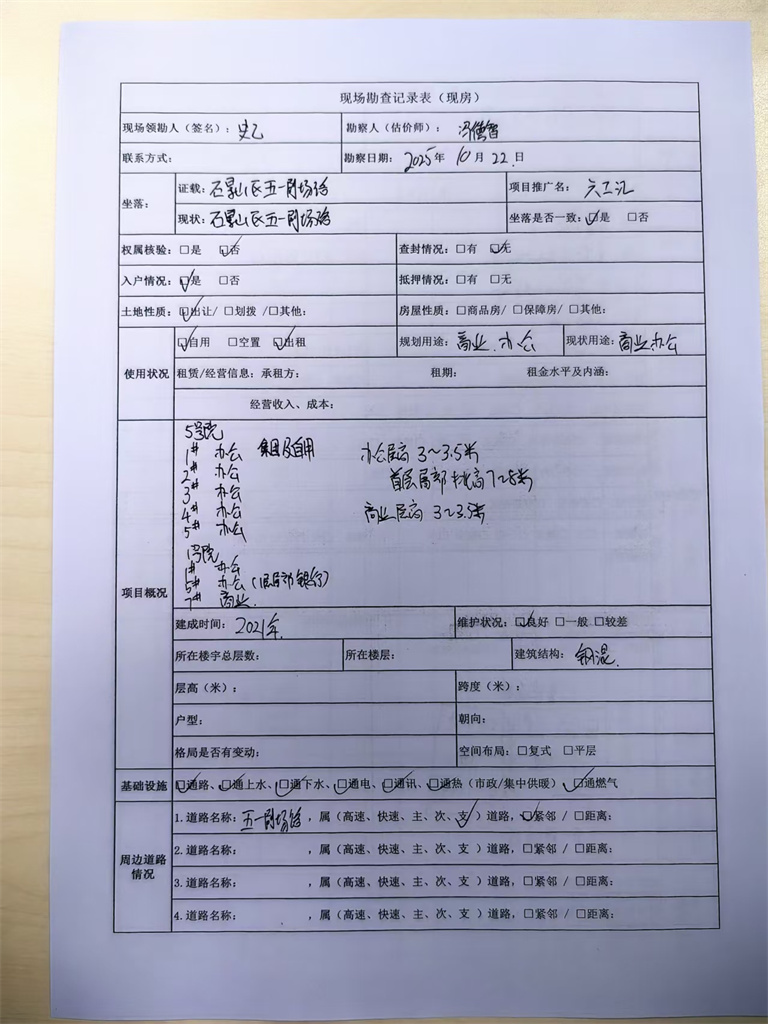 现场勘查记录表（现房）
现场领勘人（签名）： 勘察人（估价师）：
联系方式： 勘察日期： 2025年 10月 22日
坐落： 证载：石景山区五一剧场路 项目推广名：六工汇
现状：石景山区五一剧场路 坐落是否一致：☑是 □否
权属核验：□是 ☑否 查封情况：□有 ☑无
入户情况：☑是 □否 抵押情况：□有 □无
土地性质：☑出让/ □划拨 /□其他： 房屋性质：□商品房/ □保障房/ □其他：
使用状况 ☑自用 □空置 ☑出租 规划用途：商业、办公 现状用途：商业办公
租赁/经营信息：承租方： 租期： 租金水平及内涵：
经营收入、成本：
项目概况
5号院
1# 办公 集团及自用 办公层高 3~3.5米
2# 办公 首层局部挑高 7~8米
3# 办公
4# 办公 商业层高 3~3.5米
5# 办公
1号院
1# 办公
5# 办公（局部银行）
7# 商业
建成时间：2021年. 维护状况：☑良好 □一般 □较差
所在楼宇总层数： 所在楼层： 建筑结构：钢混.
层高（米）： 跨度（米）：
户型： 朝向：
格局是否有变动： 空间布局：□复式 □平层
基础设施 ☑通路、☑通上水、☑通下水、☑通电、☑通讯、☑通热（市政/集中供暖） ☑通燃气
周边道路情况
1.道路名称：五一剧场路，属（高速、快速、主、次、支✓）道路，☑紧邻 / □距离：
2.道路名称： ，属（高速、快速、主、次、支 ）道路，□紧邻 / □距离：
3.道路名称： ，属（高速、快速、主、次、支 ）道路，□紧邻 / □距离：
4.道路名称： ，属（高速、快速、主、次、支 ）道路，□紧邻 / □距离：